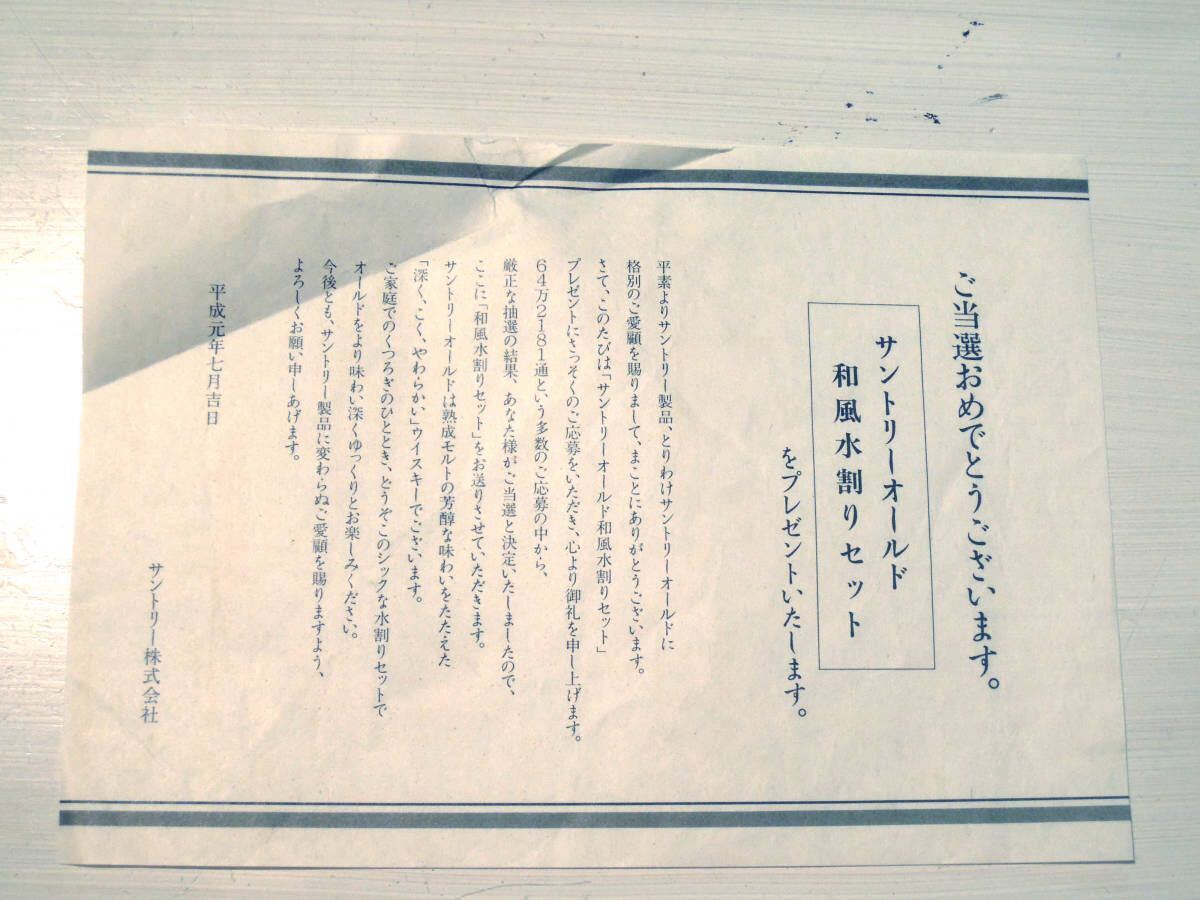 ご当選おめでとうございます。
サントリーオールド
和風水割りセット
をプレゼントいたします。
平素よりサントリー製品、とりわけサントリーオールドに
格別のご愛顧を賜りまして、まことにありがとうございます。
さて、このたびは「サントリーオールド和風水割りセット」
プレゼントにさっそくのご応募をいただき、心より御礼を申し上げます。
64万2181通という多数のご応募の中から、
厳正な抽選の結果、あなた様がご当選と決定いたしましたので、
ここに「和風水割りセット」をお送りさせていただきます。
サントリーオールドは熟成モルトの芳醇な味わいをたたえた
「深く、こく、やわらかい」ウイスキーでございます。
ご家庭でのくつろぎのひととき、どうぞこのシックな水割りセットで
オールドをより味わい深くゆっくりとお楽しみください。
今後とも、サントリー製品に変わらぬご愛顧を賜りますよう、
よろしくお願い申しあげます。
平成元年七月吉日
サントリー株式会社